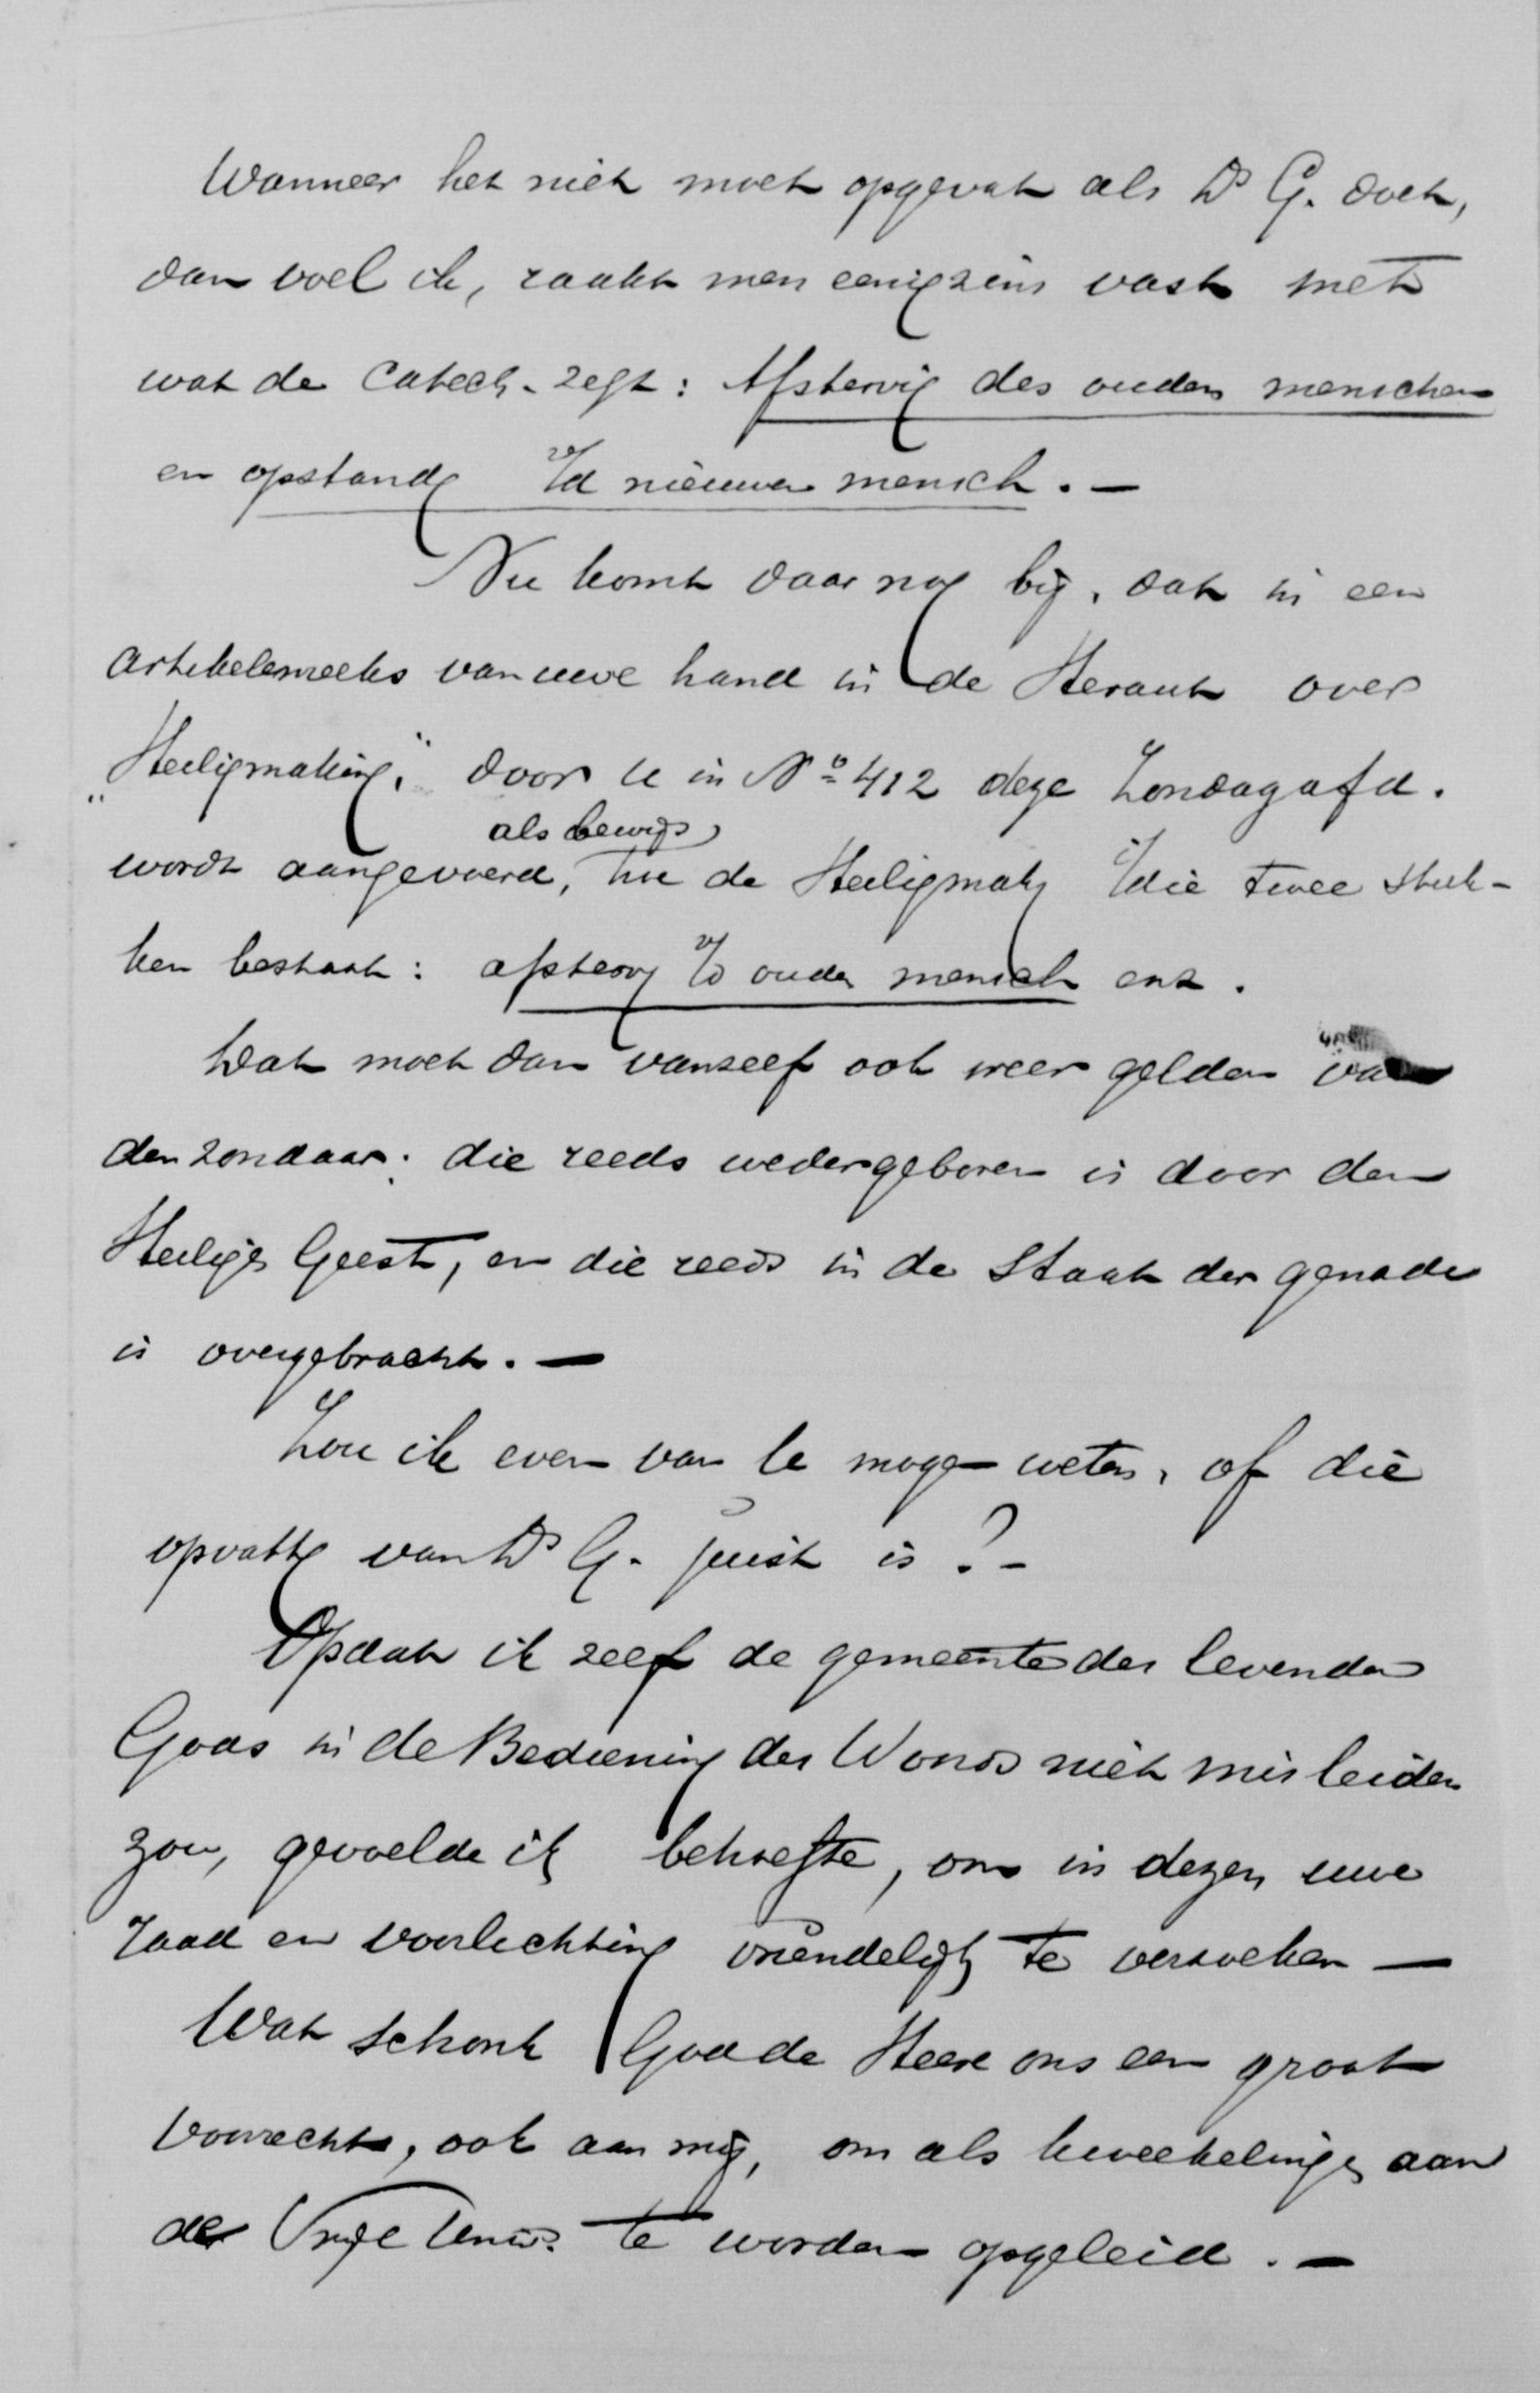 Wanneer het niet moet opgevat als Ds G. doet,
dan voel ik, raakt men eenigzins vast met
wat de Catech. zegt: Afstervig des ouden menschen
en opstandg v/d nieuwen mensch. -
Nu komt daar nog bij, dat in een
artikelenreeks van uwe hand in de Heraut over
"Heiligmaking," door U in No 412 deze Zondagafd.
als bewijs
wordt aangevoerd, hoe de Heiligmakg i/die twee stuk-
ken bestaat: afstervg v/d ouden mensch enz.
Dat moet dan vanzelf ook weer gelden van
den zondaar: die reeds wedergeboren is door den
Heiligen Geest, en die reeds in de Staat der genade
is overgebracht. -
Zou ik even van U mogen weten, of die
opvattg van Ds G. juist is? -
Opdat ik zelf de gemeente des levenden
Gods in de Bediening des Woords niet misleiden
zou, gevoelde ik behoefte, om in dezen uwe
raad en voorlichting vriendelijk te verzoeken -
Wat schonk God de Heere ons een groot
voorrecht, ook aan mij, om als kweekelingen aan
de Vrije Univ. te worden opgeleid. -